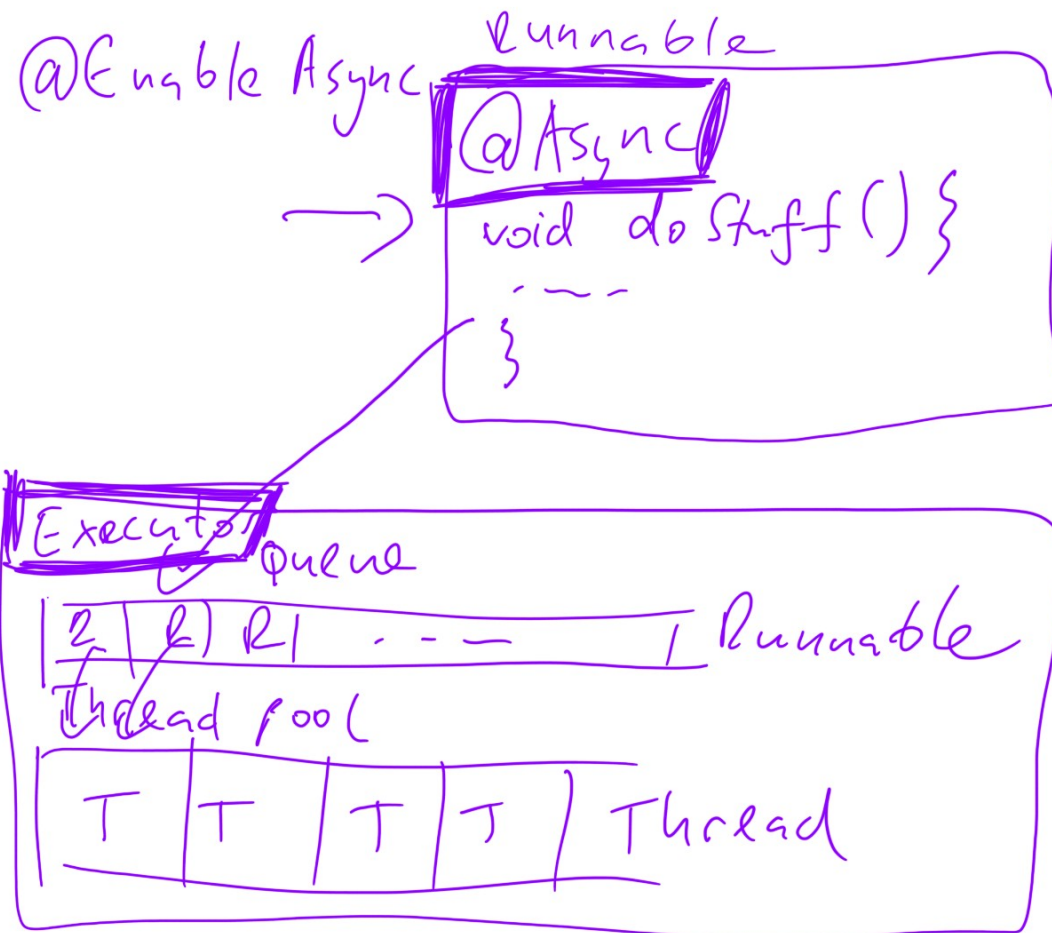 Runnable
@Enable Async
@Async
void doStuff() {
----
}
Executor
Queue
R R R --- Runnable
Thread pool
T T T T Thread